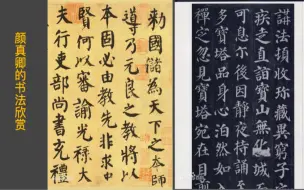 颜真卿的书法欣赏
勅國儲為天下之本師
導乃元良之教將以
本固必由教先非求忠
賢何以審諭光祿大
夫行吏部尚書充禮
講法收珍藏異窮子之
疾走直詣寶山無化城
可息尔後因靜夜持誦至
多寶塔品身心泊然如入
禪定忽見寶塔宛在目前